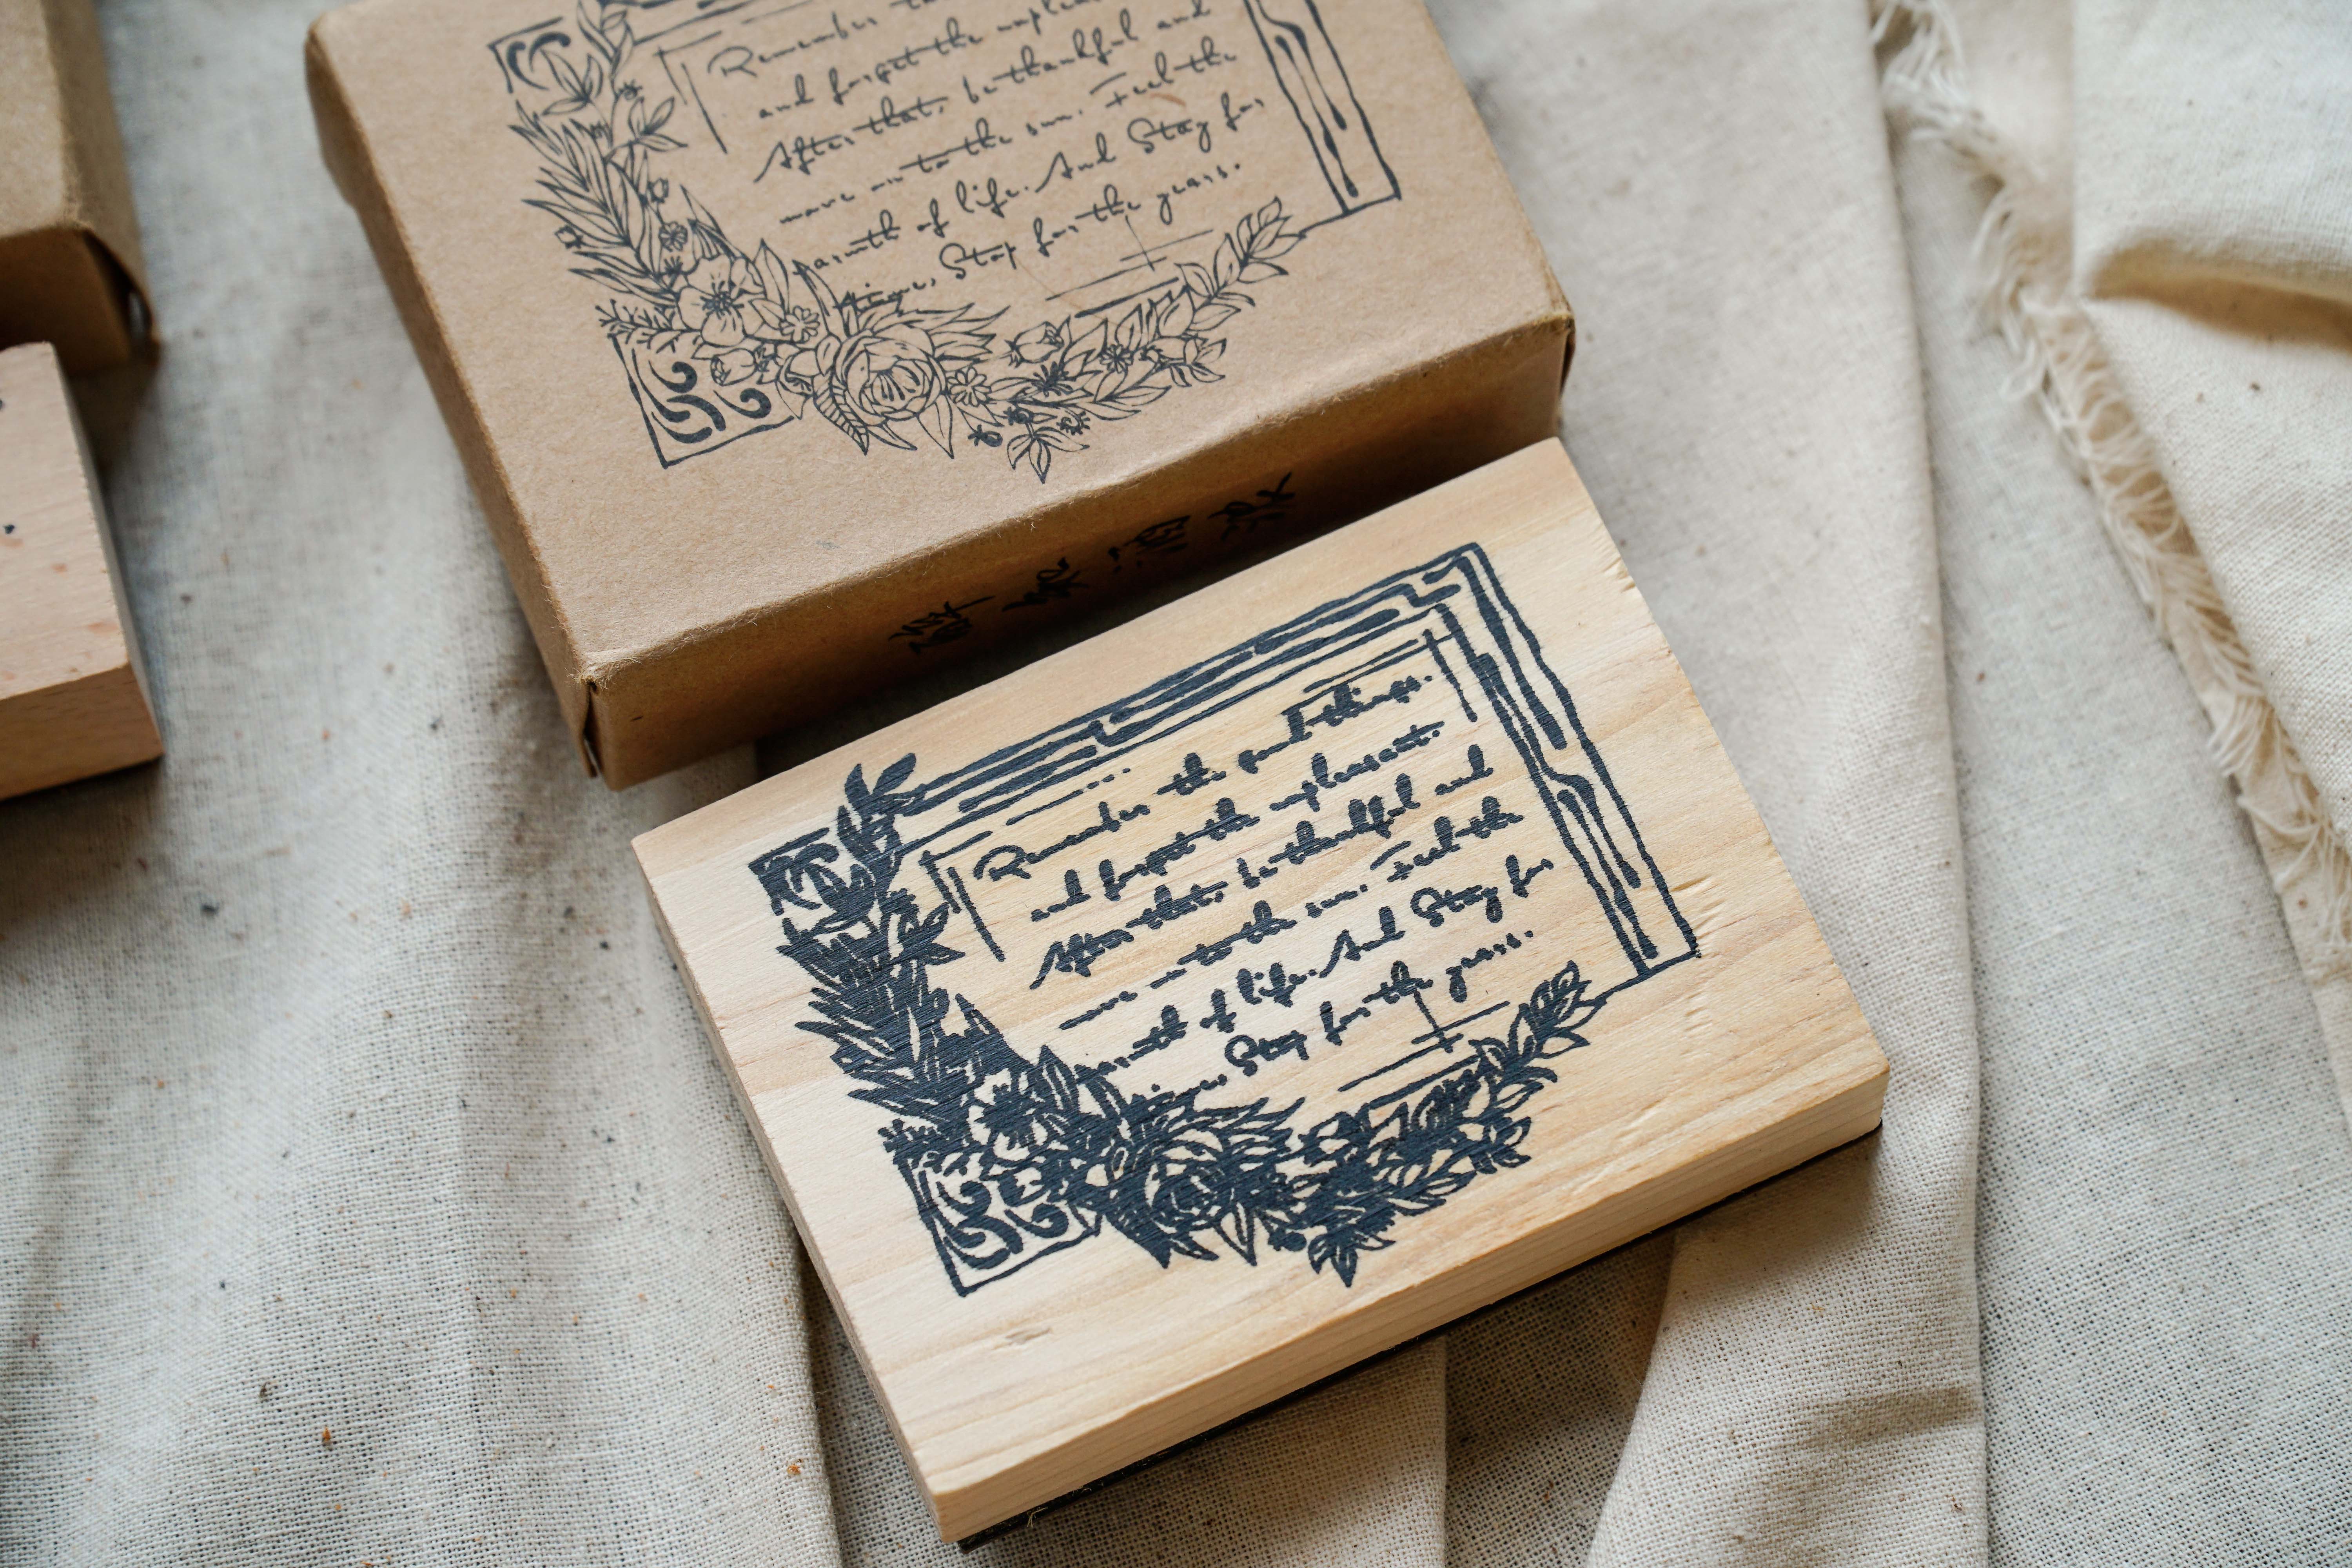 Remember
and forget the
After that, be thankful and
move on to the sun. Feel the
armth of life. And Stay for
time, Stay for the years.
Remember the good things.
and forget the unpleasant.
After that, be thankful and
move on to the sun. Feel the
armth of life. And Stay for
time, Stay for the years.